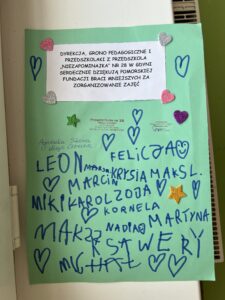 DYREKCJA, GRONO PEDAGOGICZNE I
PRZEDSZKOLAKI Z PRZEDSZKOLA
„NIEZAPOMINAJKA" NR 28 W GDYNI
SERDECZNIE DZIĘKUJĄ POMORSKIEJ
FUNDACJI BRACI MNIEJSZYCH ZA
ZORGANIZOWANIE ZAJĘĆ
LEON FELICJA
MAJA KRYSIA MAKS L.
MARCIN
MIKI KAROL ZOJA
KORNELA
NADIA MARTYNA
KSAWERY
MICHAŁ